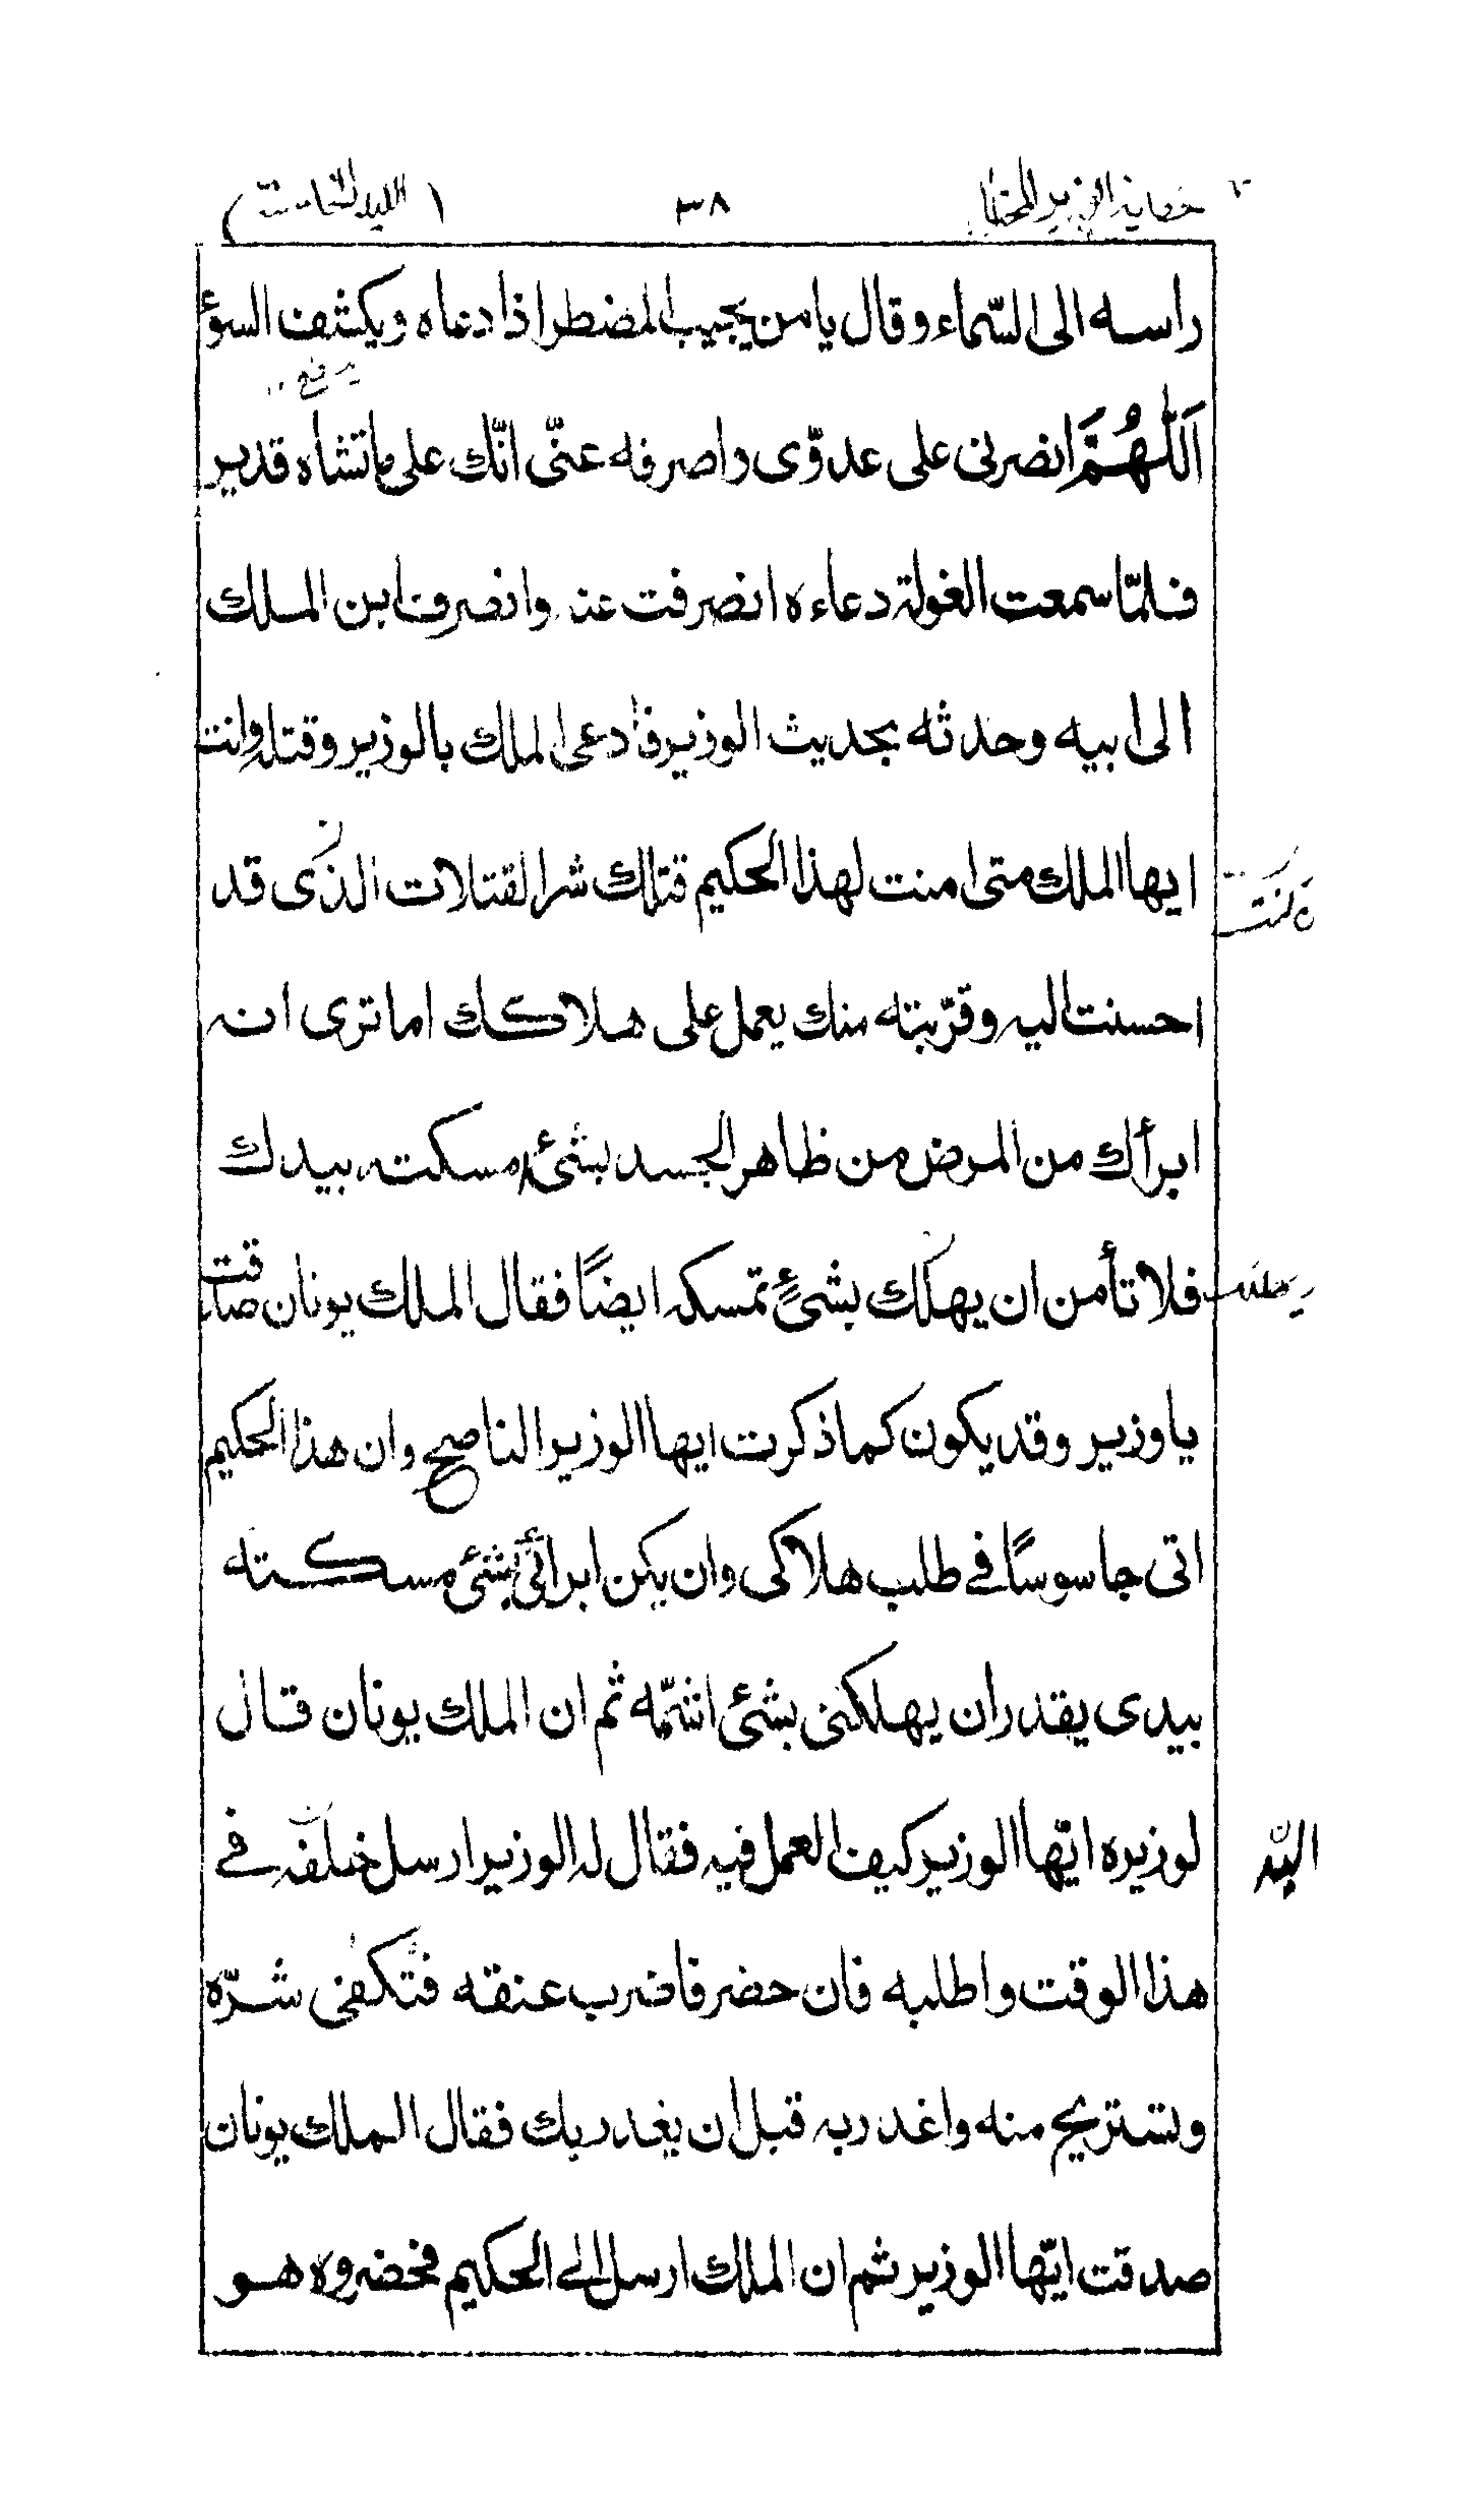 ٣٨
راسه الى السّماء وقال يا من يجيب المضطر اذا دعاه ويكشف السوٓء
اَللّٰهُمَّ انصرنى على عدوّى واصرفه عنّى انّك على ماتشاء قدير
فلمّا سمعت الغولة دعاءه انصرفت عنه وانصرف ابن الملك
الى ابيه وحدثه بحديث الوزير فادعى الملك بالوزير وقتله وانت
ايها الملك متى امنت لهذا الحكيم قتلك شر القتلات الذى قد
احسنت اليه وقرّبته منك يعمل على هلاكك اما ترى انه
ابرأك من المرض من ظاهر الجسد بشئ مسكته بيدك
فلا تأمن ان يهلك بشئٍ تمسكه ايضاً فقال الملك يونان صدقت
يا وزير وقد يكون كما ذكرت ايها الوزير الناصح وان هذا الحكيم
اتى جاسوسًا فى طلب هلاكى وان يكن ابرأنى بشئ مسكته
بيدى يقدر ان يهلكنى بشئ اشمّه ثم ان الملك يونان قال
لوزيره ايّها الوزير كيف العمل فيه فقال له الوزير ارسل خلفه فى
هذا الوقت واطلبه فان حضر فاضرب عنقه فتكفى شرّه
وتستريح منه واغدر به قبل ان يغدر بك فقال الملك يونان
صدقت ايّها الوزير ثم ان الملك ارسل الى الحكيم فحضر وهو